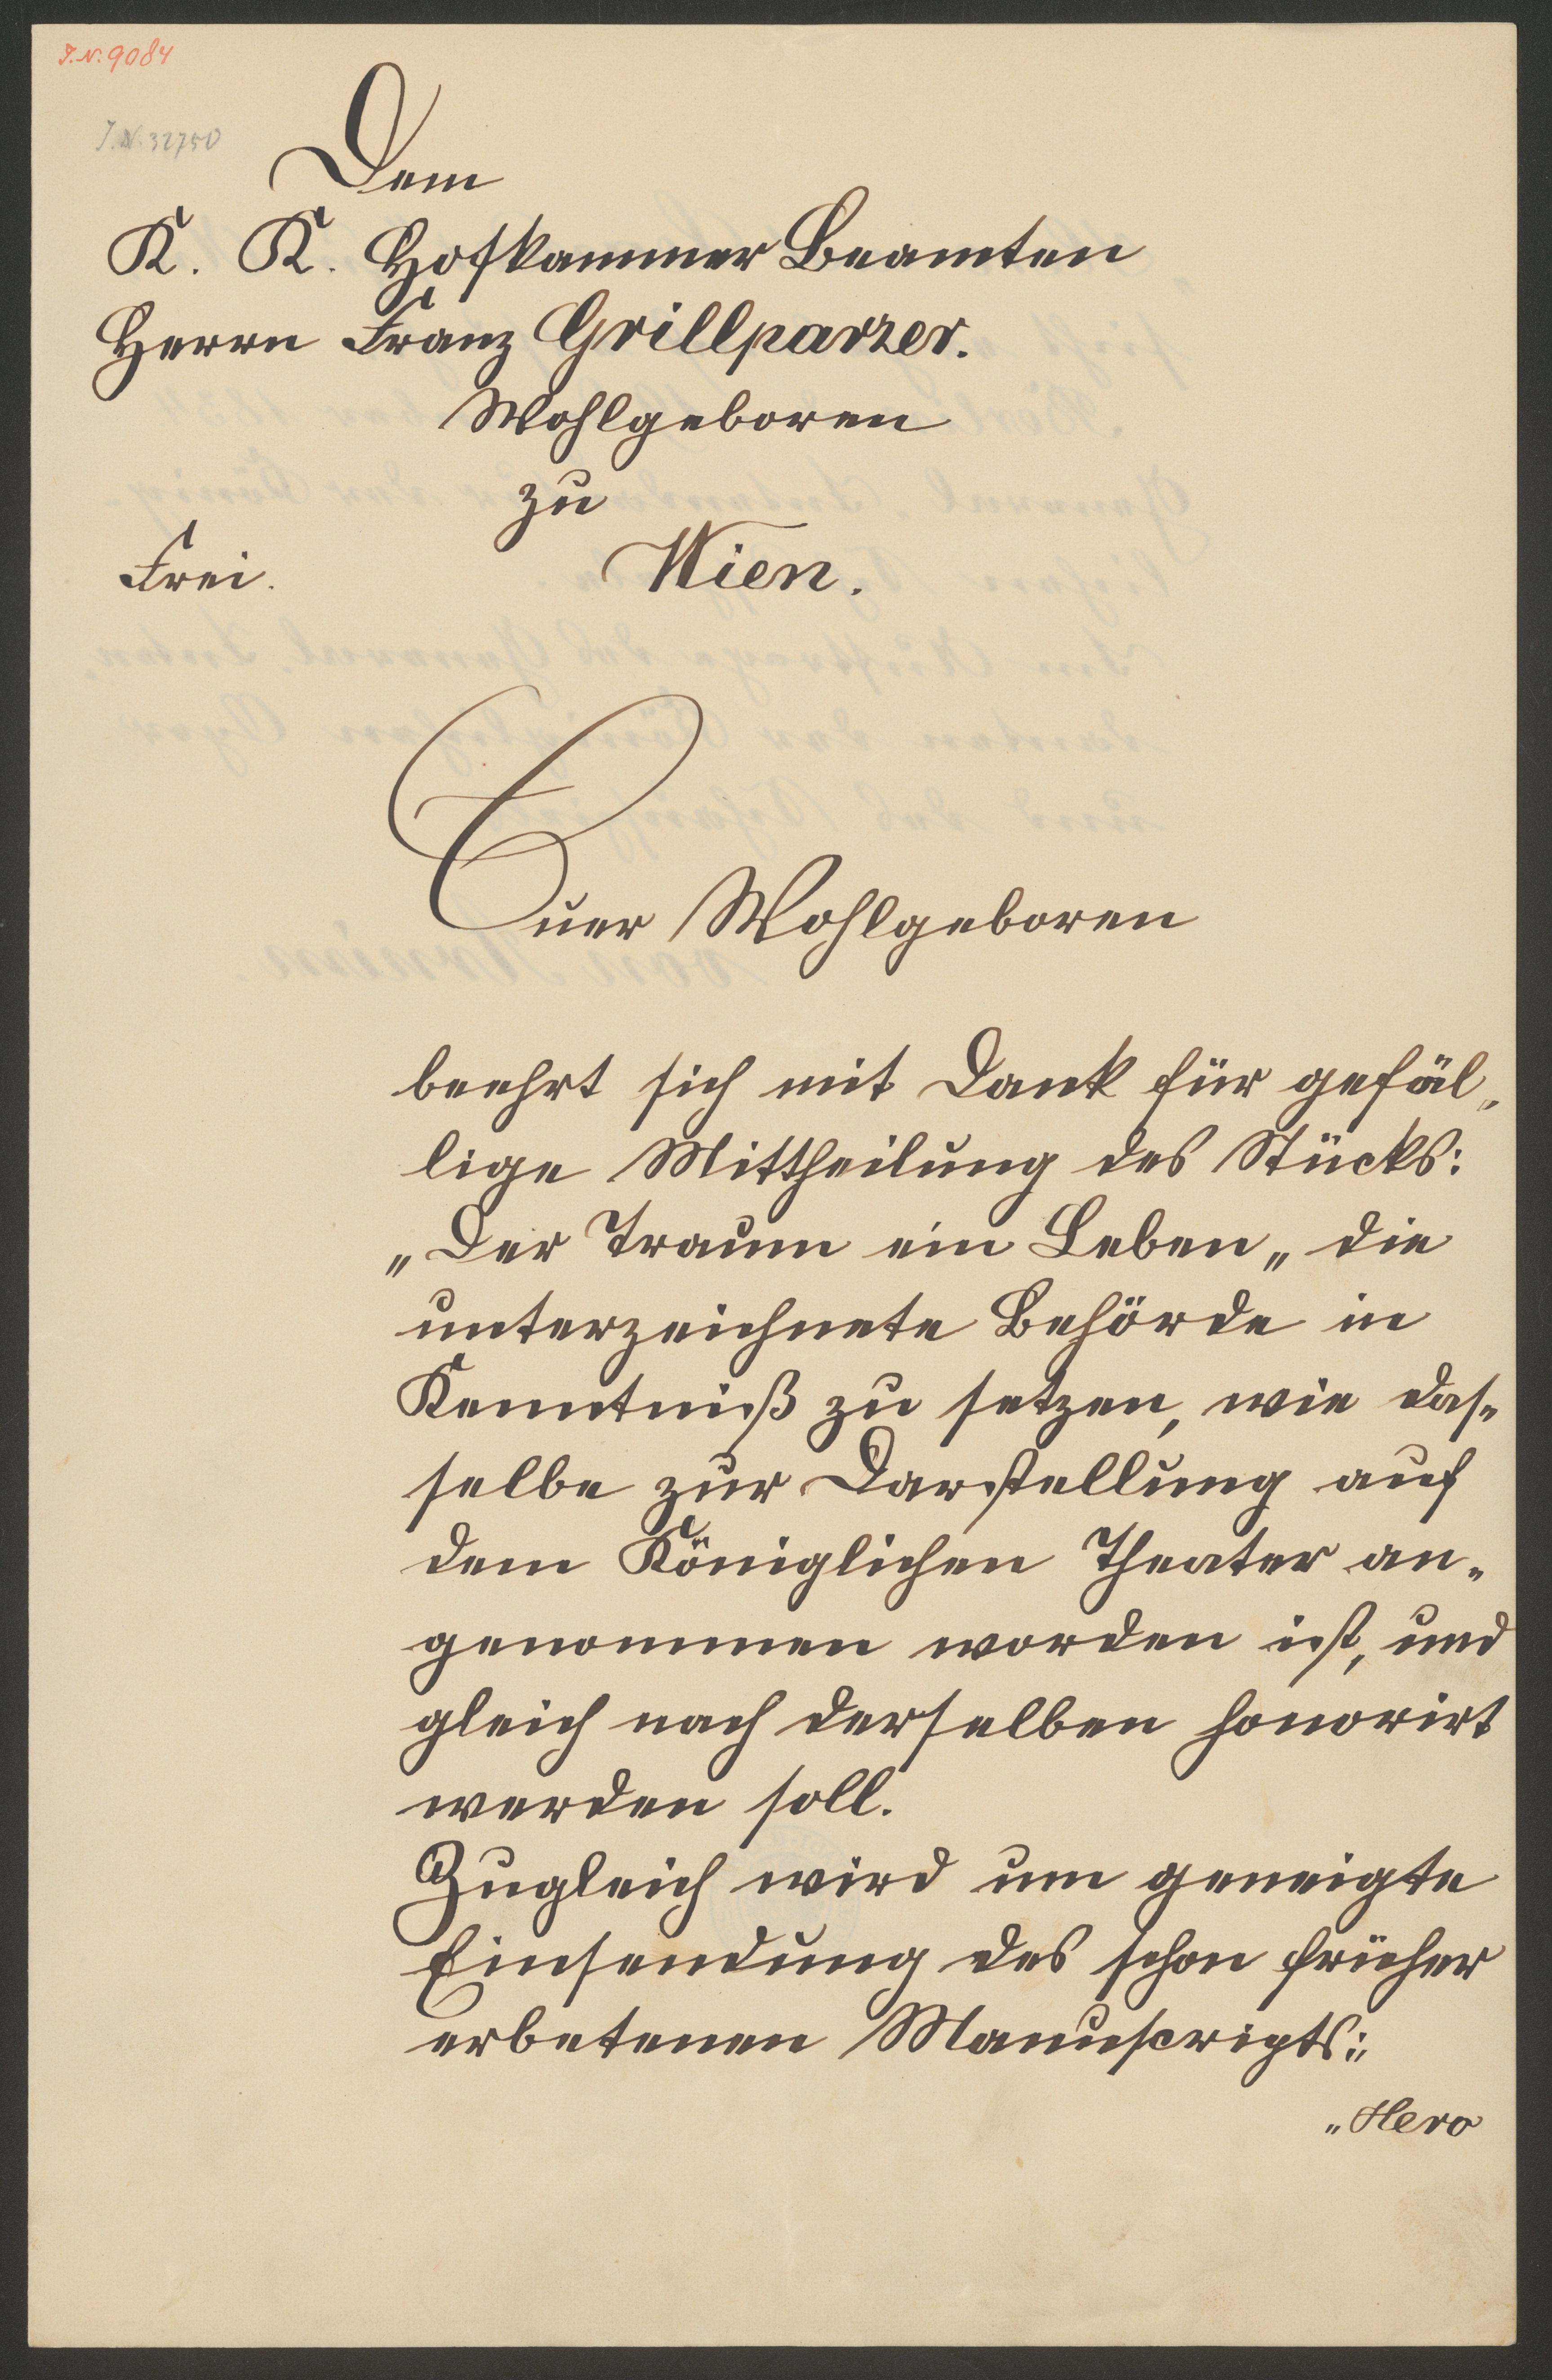 J.N. 9084
J.N. 32750
Dem
K. K. Hofkammer Beamten
Herrn Franz Grillparzer.
Wohlgeboren
zu
Frei. Wien.
Euer Wohlgeboren
beehrt sich mit Dank für gefäl„
lige Mittheilung des Stücks:
„Der Traum ein Leben„ die
unterzeichnete Behörde in
Kenntniß zu setzen, wie das„
selbe zur Darstellung auf
dem Königlichen Theater an„
genommen worden ist, und
gleich nach derselben honorirt
werden soll.
Zugleich wird um geneigte
Einsendung des schon früher
erbetenen Manuscripts:„
„Hero